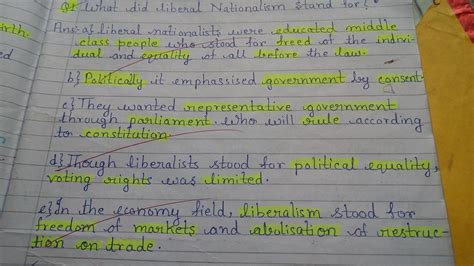 Q1 What did liberal Nationalism stand for?
Ans- a} liberal nationalists were educated middle
class people who stood for freed of the indivi-
dual and equality of all before the law.
b} Politically it emphassised government by consent-
c} They wanted representative government
through parliament who will rule according
to constitution.
d} Though liberalists stood for political equality,
voting rights was limited.
e} In the economy field, liberalism stood for
freedom of markets and abolisation of restruc-
tion on trade.